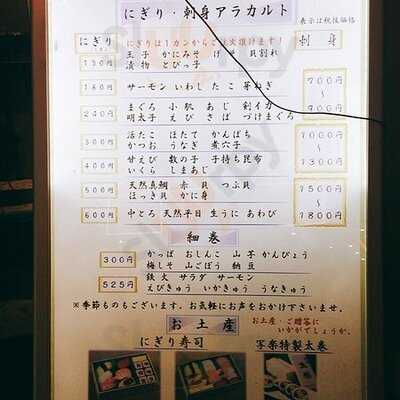 にぎり・刺身アラカルト
表示は税抜価格
にぎり
にぎりは1カンからご注文頂けます!
刺身
130円
玉子 かにみそ げそ 貝割れ
漬物 とびっ子
180円
サーモン いわし たこ 芽ねぎ
700円
〜
900円
240円
まぐろ 小肌 あじ 剣イカ
明太子 えび さば づけまぐろ
300円
活たこ ほたて かんぱち
かつお うなぎ 煮穴子
1000円
〜
1300円
400円
甘えび 数の子 子持ち昆布
いくら しまあじ
500円
天然真鯛 赤貝 つぶ貝
ほっき貝 かに身
1500円
〜
1800円
600円
中とろ 天然平目 生うに あわび
細巻
300円
かっぱ おしんこ 山芋 かんぴょう
梅しそ 山ごぼう 納豆
525円
鉄火 サラダ サーモン
えびきゅう いかきゅう うなきゅう
※季節ものもございます。お気軽にお声をおかけ下さいませ。
お土産
お土産・ご贈答に
いかがでしょうか。
にぎり寿司
写楽特製太巻